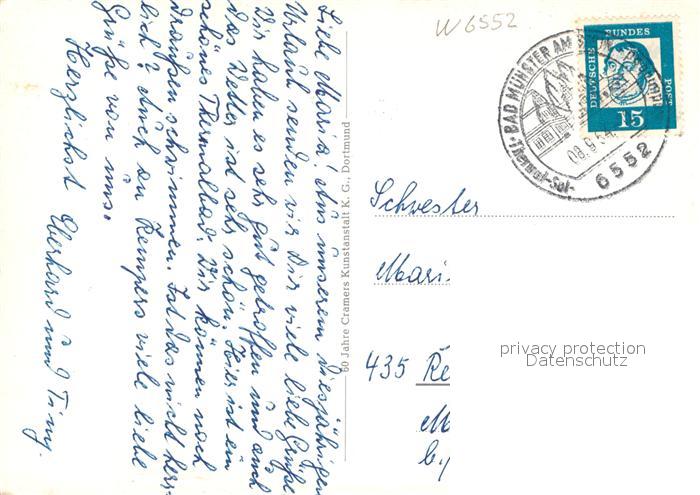 W 6552
Liebe Maria! Aus unserem diesjährigen
Urlaub senden wir Dir viele liebe Grüße
Wir haben es sehr gut getroffen und auch
das Wetter ist sehr schön. Hier ist ein
schönes Thermalbad. Wir können noch
draußen schwimmen. Ist das nicht herr-
lich? Auch an Kempers viele liebe
Grüße von uns.
Herzlichst Eberhard und Tiny.
60 Jahre Cramers Kunstanstalt K. G., Dortmund
BAD MÜNSTER AM
Thermal-Sol-
08.9.
6552
DEUTSCHE BUNDES POST
15
Schwester
Mari
435 Re
M
b.
privacy protection
Datenschutz